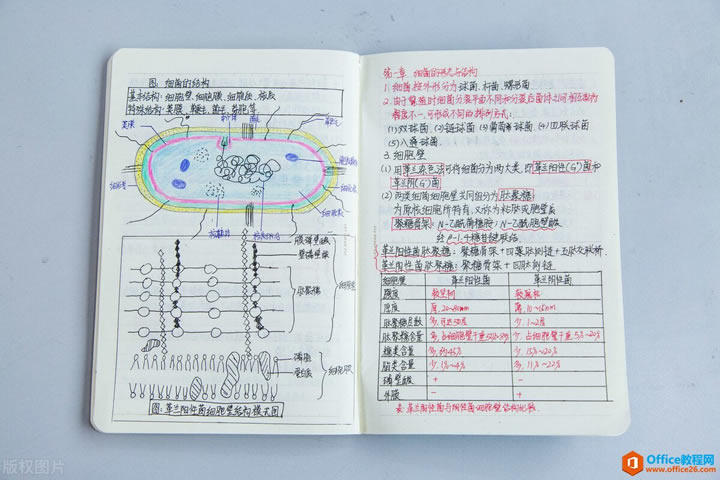 图 细菌的结构
基本结构:细胞壁、细胞膜、细胞质、核质
特殊结构:荚膜、鞭毛、菌毛、芽孢等
荚膜
细胞壁
细胞质
细胞膜
膜磷壁酸
壁磷壁酸
肽聚糖
细胞壁
磷脂
蛋白质
细胞膜
图:革兰阳性菌细胞壁结构模式图
第一章 细菌的形态与结构
1. 细菌按外形分为球菌、杆菌、螺形菌
2. 由于繁殖时细菌分裂平面不同和分裂后菌体之间相互黏附
程度不一,可形成不同的排列方式:
(1)双球菌 (2)链球菌 (3)葡萄球菌 (4)四联球菌
(5)八叠球菌
3. 细胞壁
(1) 用革兰染色法可将细菌分为两大类,即革兰阳性(G⁺)菌和
革兰阴(G⁻)菌
(2) 两类细菌细胞壁共同组分为肽聚糖
为原核细胞所特有,又称为粘肽或胞壁质
聚糖骨架:N-乙酰葡糖胺、N-乙酰胞壁酸
经β-1.4糖苷键联结
革兰阳性菌肽聚糖:聚糖骨架+四肽侧链+五肽交联桥
革兰阴性菌肽聚糖:聚糖骨架+四肽侧链
细胞壁 革兰阳性菌 革兰阴性菌
强度 较坚韧 较疏松
厚度 厚,20~80nm 薄,10~15nm
肽聚糖层数 多,可达50层 少,1~2层
肽聚糖含量 多,占细胞壁干重50%~80% 少,占细胞壁干重5%~20%
糖类含量 多,约45% 少,15%~20%
脂类含量 少,1%~4% 多,11%~22%
磷壁酸 + -
外膜 - +
表 革兰阳性菌与阴性菌细胞壁结构比较
版权图片
Office教程网
www.office26.com